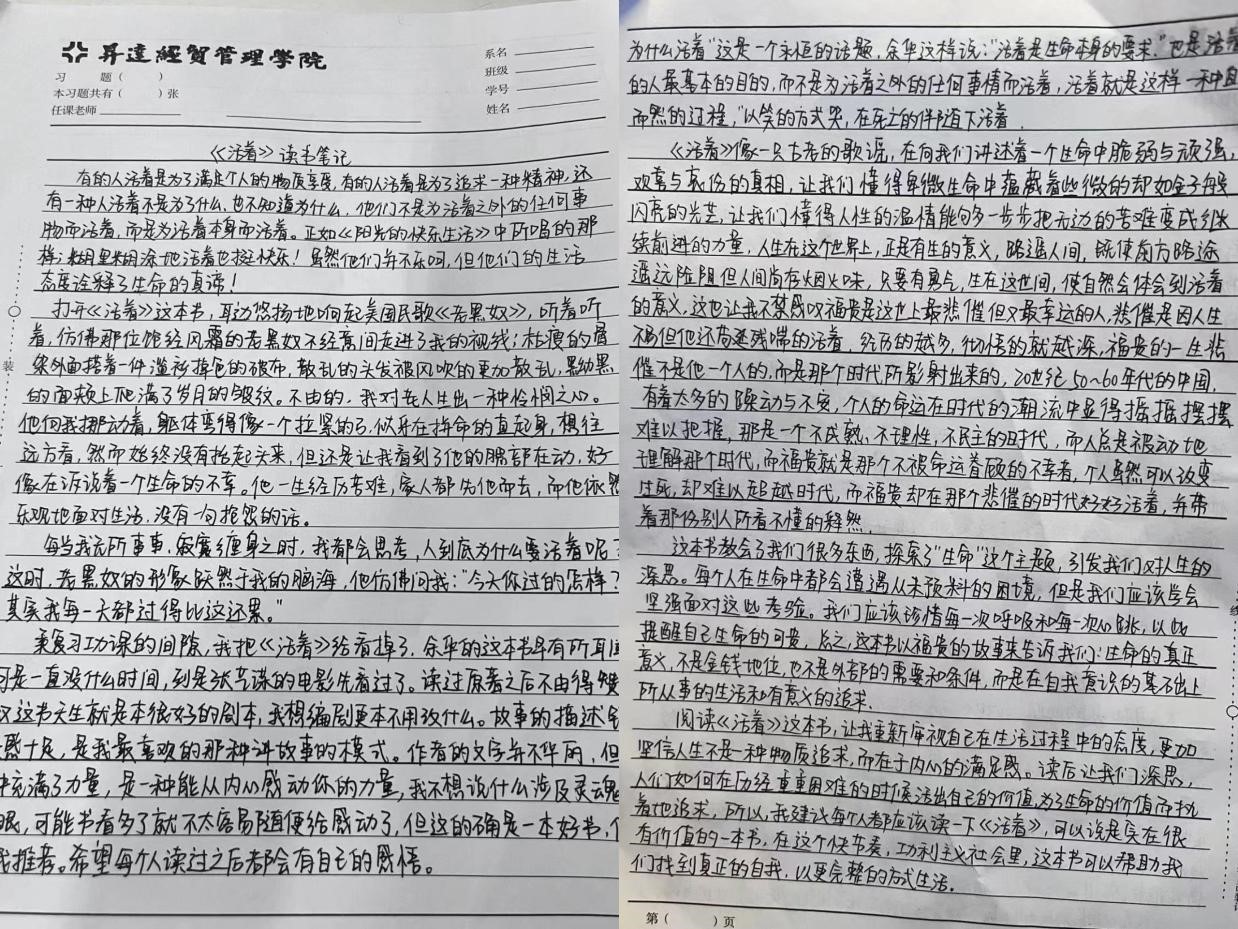 昇達經貿管理學院
习 题（ ）
本习题共有（ ）张
任课老师
系名
班级
学号
姓名
《活着》读书笔记
有的人活着是为了满足个人的物质享受,有的人活着是为了追求一种精神,还
有一种人活着不是为了什么,也不知道为什么,他们不是为活着之外的任何事
物而活着,而是为活着本身而活着。正如《阳光的快乐生活》中所唱的那
样:糊里糊涂地活着也挺快乐!虽然他们并不乐呵,但他们的生活
态度诠释了生命的真谛!
打开《活着》这本书,耳边悠扬地响起美国民歌《老黑奴》,听着听
着,仿佛那位饱经风霜的老黑奴不经意间走进了我的视线:枯瘦的肩
外面搭着一件褴褛掉色的破布,散乱的头发被风吹的更加散乱,黝黑
的面颊上爬满了岁月的皱纹。不由的,我对老人生出一种怜悯之心。
他向我挪动着,躯体弯得像一个拉紧的弓,似乎在拼命的直起身,想往
远方看,然而始终没有抬起头来,但还是让我看到了他的胸部在动,好
像在诉说着一个生命的不幸。他一生经历苦难,家人都先他而去,而他依然
乐观地面对生活,没有一句抱怨的话。
每当我无所事事,寂寞缠身之时,我都会思考,人到底为什么要活着呢?
这时,老黑奴的形象跃然于我的脑海,他仿佛问我:“今天你过的怎样?
其实我每一天都过得比这还累。”
乘复习功课的间隙,我把《活着》给看掉了.余华的这本书早有所耳闻
可是一直没什么时间,到是张艺谋的电影先看过了。读过原著之后不由得
这书天生就是本很好的剧本,我想编剧更本不用改什么。故事的描述
感十足,是我最喜欢的那种讲故事的模式。作者的文字并不华丽,但
充满了力量,是一种能从内心感动你的力量,我不想说什么涉及灵魂
眼,可能书看多了就不太容易随便给感动了,但这的确是一本好书,
我推荐。希望每个人读过之后都会有自己的感悟。
为什么活着“这是一个永恒的话题,余华这样说:“活着是生命本身的要求.”也是活着
的人最基本的目的,而不是为活着之外的任何事情而活着,活着就是这样一种自
而然的过程,“以笑的方式哭,在死亡的伴随下活着.
《活着》像一只古老的歌谣,在向我们讲述着一个生命中脆弱与顽强,
欢喜与哀伤的真相,让我们懂得卑微生命中蕴藏着些微的却如金子般
闪亮的光芒,让我们懂得人性的温情能够多一步步把无边的苦难变成继
续前进的力量,人生在这个世界上,正是有生的意义,路遥人间,既使前方路途
遥远险阻但人间尚存烟火味,只要有勇气,生在这世间,使自然会体会到活着
的意义,这也让我不禁感叹福贵是这世上最悲催但又最幸运的人,悲催是因人生
不易但他还苟延残喘的活着,经历的越多,彻悟的就越深,福贵的一生悲
催不是他一个人的,而是那个时代所影射出来的,20世纪50~60年代的中国,
有着太多的躁动与不安,个人的命运在时代的潮流中显得摇摇摆摆
难以把握,那是一个不成熟、不理性、不民主的时代,而人总是被动地
理解那个时代,而福贵就是那个不被命运眷顾的不幸者,个人虽然可以改变
过死,却难以超越时代,而福贵却在那个悲催的时代好好活着,并带
着那份别人所看不懂的释然.
这本书教会了我们很多东西,探索了“生命”这个主题,引发我们对人生的
深思。每个人在生命中都会遭遇从未预料的困境,但是我们应该学会
坚强面对这些考验。我们应该珍惜每一次呼吸和每一次心跳,以此
提醒自己生命的可贵,总之,这本书以福贵的故事来告诉我们:生命的真正
意义,不是金钱地位,也不是外部的需要和条件,而是在自我意识的基础上
所从事的生活和有意义的追求.
阅读《活着》这本书,让我重新审视自己在生活过程中的态度,更加
坚信人生不是一种物质追求,而在于内心的满足感。读后让我们深思,
人们如何在历经重重困难的时候活出自己的价值,为了生命的价值而执
着地追求,所以,我建议每个人都应该读一下《活着》,可以说是实在很
有价值的一本书,在这个快节奏,功利主义社会里,这本书可以帮助我
们找到真正的自我,以更完整的方式生活.
第（ ）页
装
线